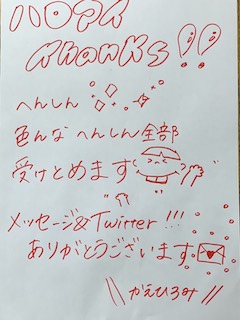 thanks!!
へんしん
色んな へんしん全部
受けとめます
メッセージ&Twitter!!!
ありがとうございます
\\ かえひろみ //